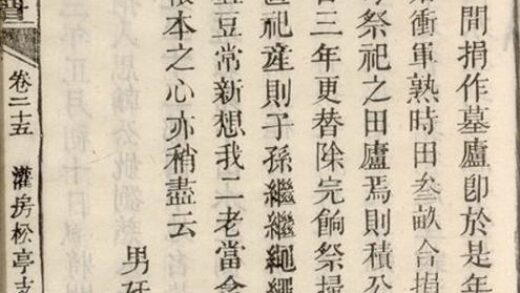 間捐作墓廬卽於是年
衝軍熟時田叁畝合捐
祭祀之田廬焉則積公
三年更替除完餉祭掃
祀產則子孫繼繼繩繩
豆常新想我二老當含
根本之心亦稍盡云
男
卷二十五 灌房松亭支